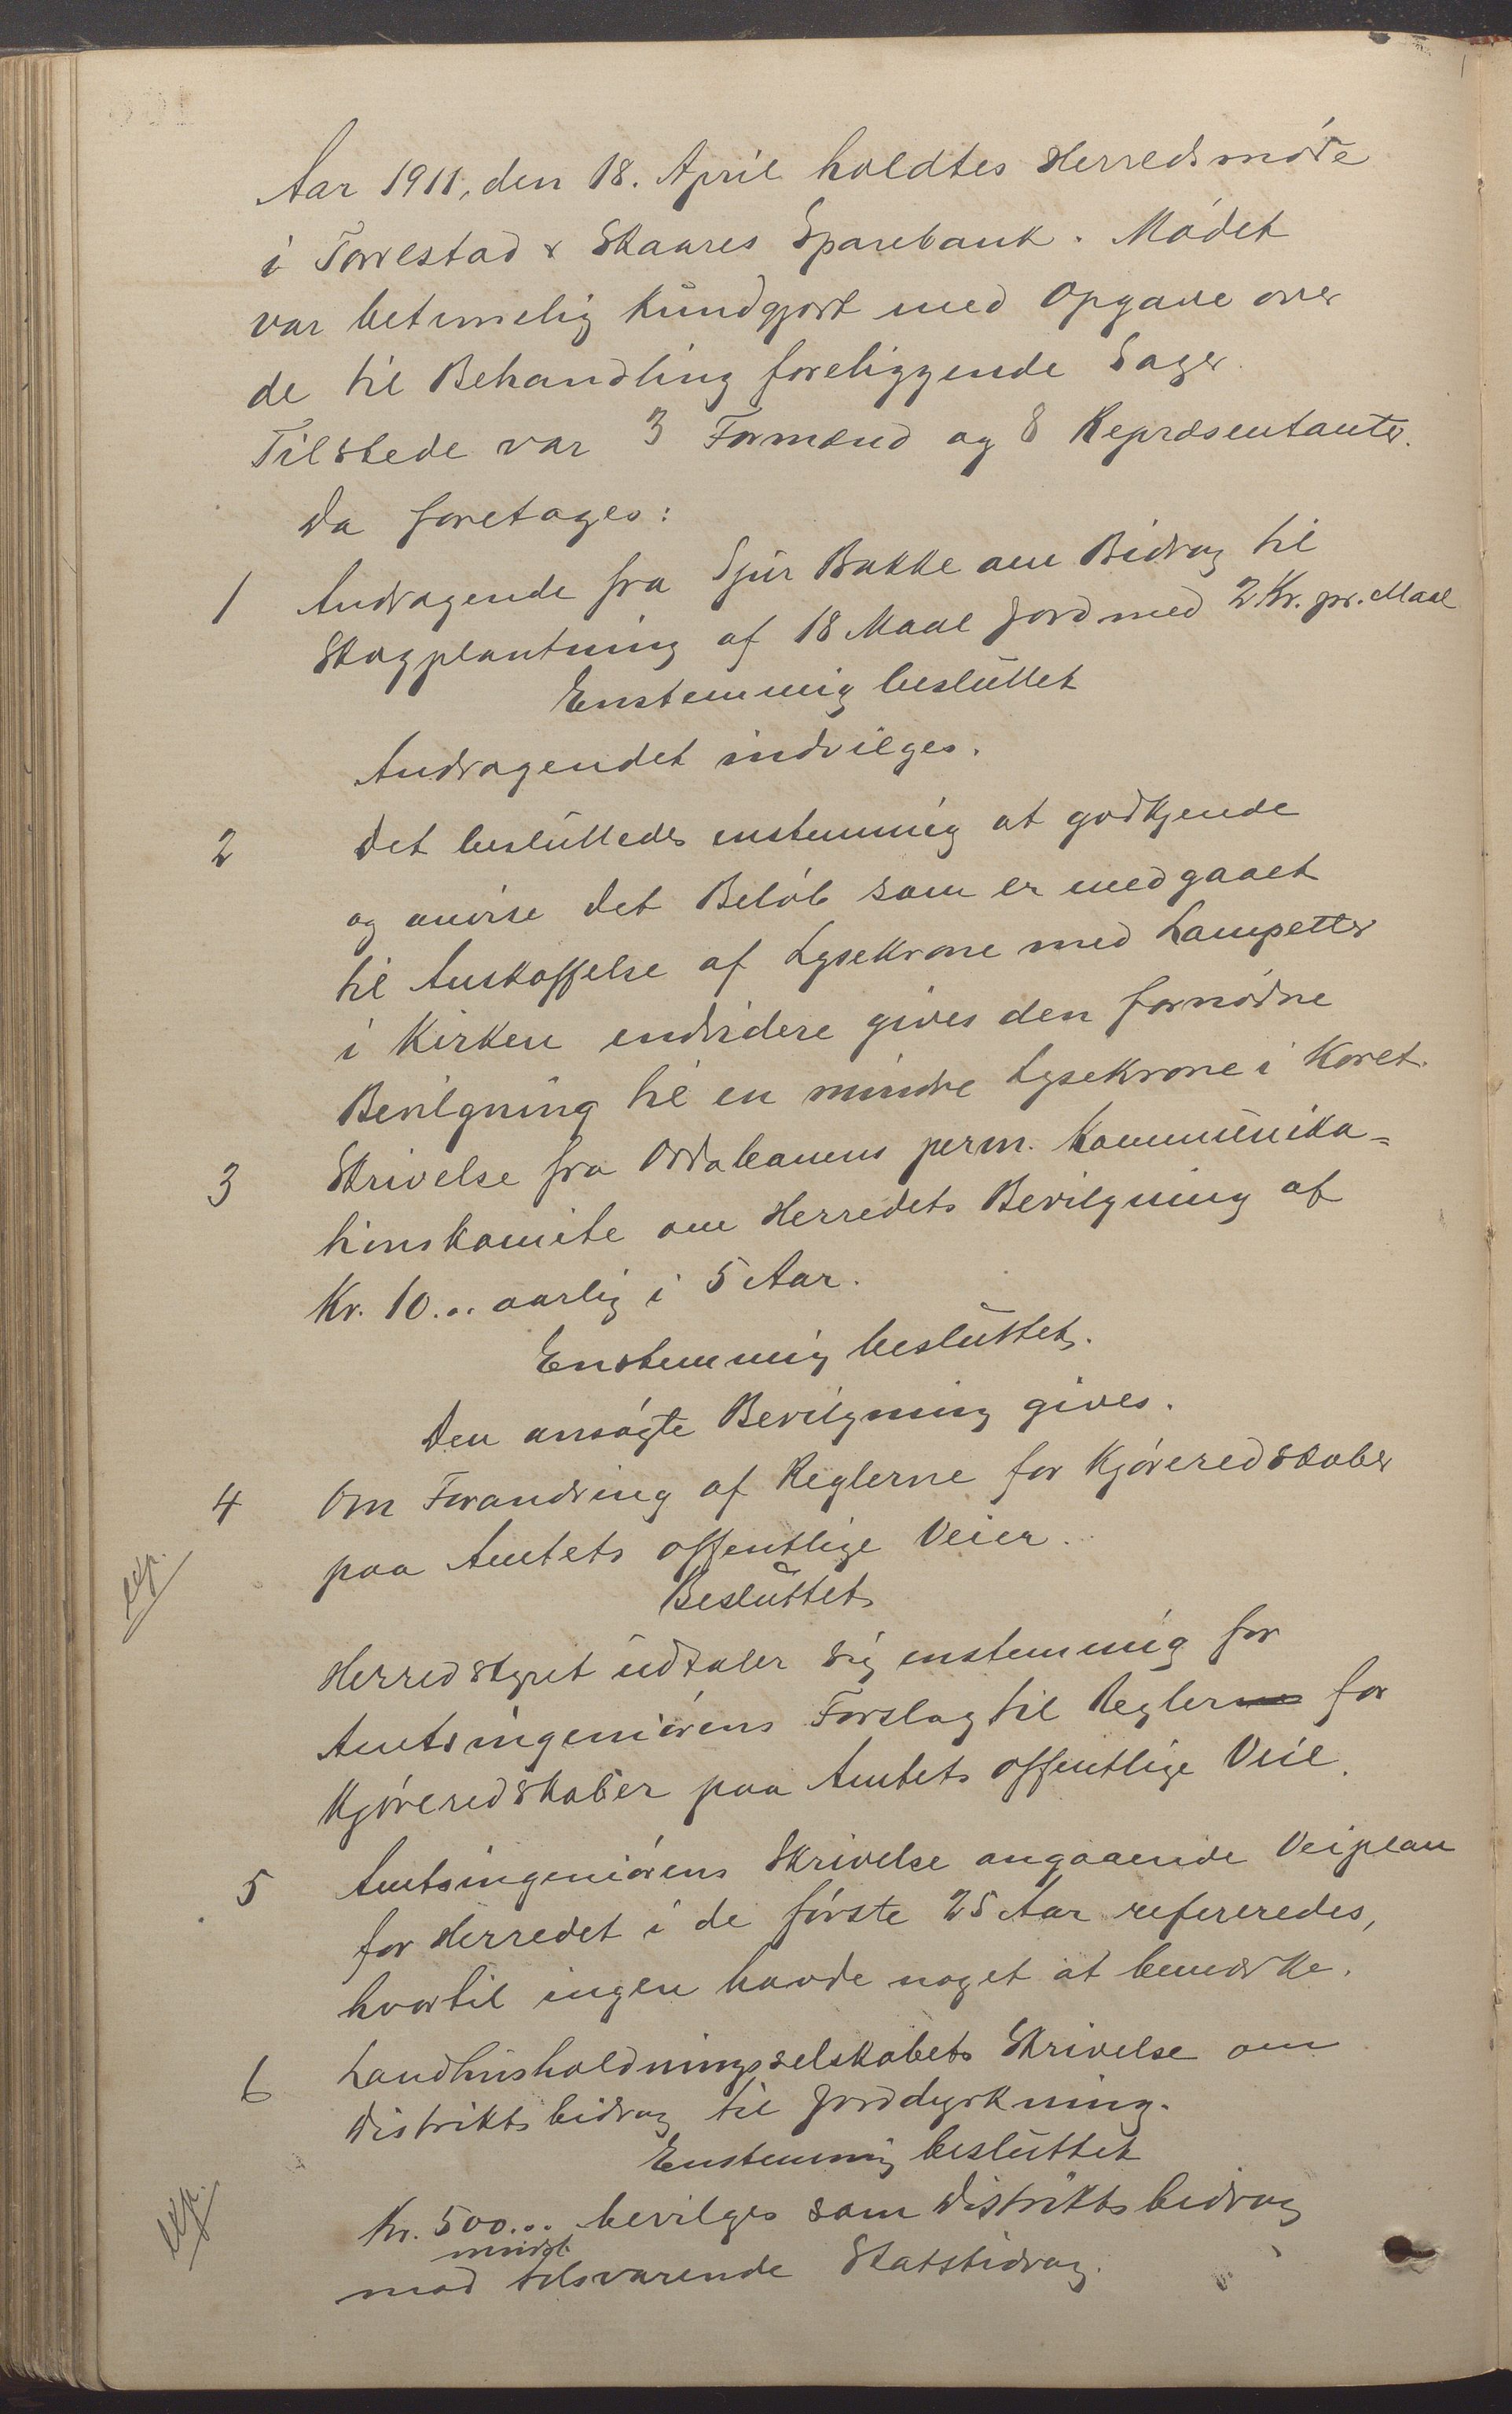 Aar 1911, den 18. April holdtes Herredsmøde
i Torvestad & Skaares Sparebank. Mødet
var betimelig kundgjort med Opgave over
de til Behandling foreliggende Sager.
Tilstede var 3 Formænd og 8 Repræsentanter.
Da foretages:
1 Andragende fra Sjur Bakke om Bidrag til
Skogplantning af 18 Maal Jord med 2 Kr. pr. Maal
Enstemmig besluttet
Andragendet indvilges.
2 Det besluttedes enstemmig at godkjende
og anvise det Beløb som er medgaaet
til Anskaffelse af Lysekrone med Lampetter
i Kirken endvidere gives den fornødne
Bevilgning til en mindre Lysekrone i Koret.
3 Skrivelse fra perm. Kommunika=
tionskomite om Herredets Bevilgning af
Kr. 10.oo aarlig i 5 Aar.
Enstemmig besluttet.
Den ansøgte Bevilgning gives.
4 Om Forandring af Reglerne for Kjøreredskaber
paa Amtets offentlige Veier.
Besluttet
Herredstyret udtaler sig enstemmig for
Amtsingeniørens Forslag til Regler for
Kjøreredskaber paa Amtets offentlige Veie.
5 Amtsingeniørens Skrivelse angaaende Veiplan
for Herredet i de første 25 Aar refereredes,
hvortil ingen havde noget at bemærke.
6 Landhusholdningsselskabets Skrivelse om
Distriktsbidrag til Jorddyrkning.
Enstemmig besluttet
Kr. 500.oo bevilges som Distriktsbidrag
mindst
mod tilsvarende Statsbidrag.